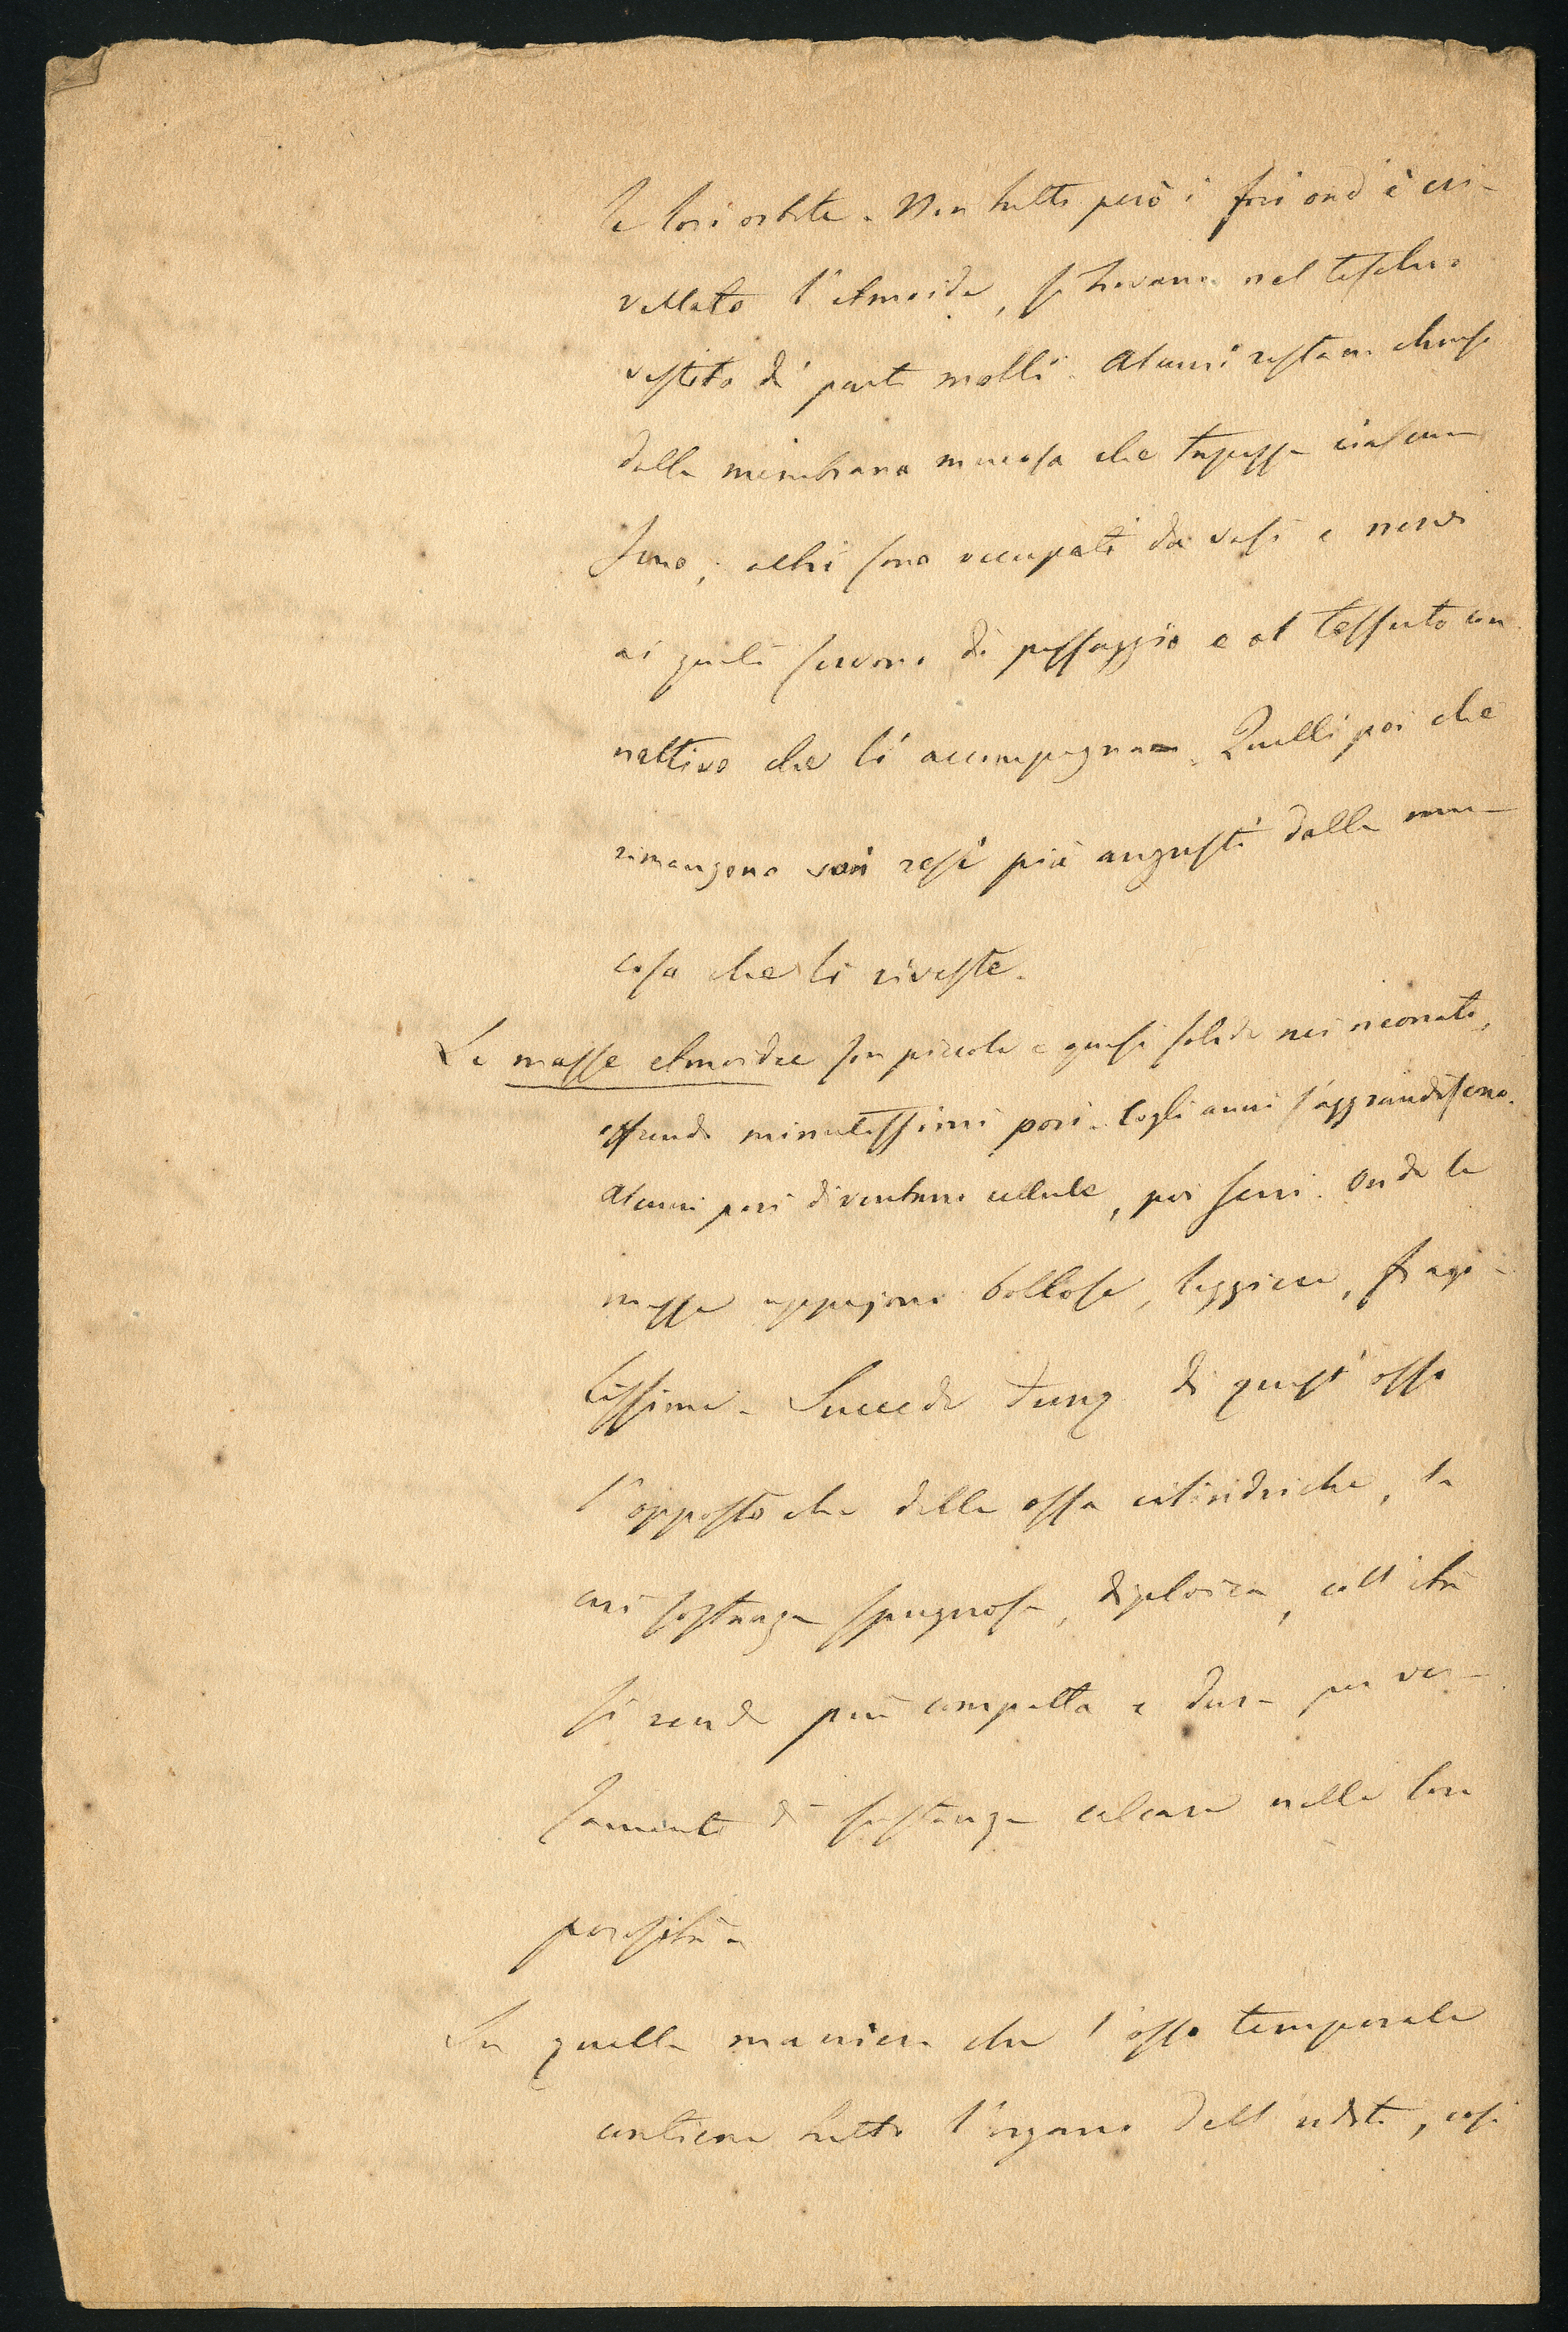 le loro orbite. Non tutti però i fori ond'è cri-
vellato l'etmoide, si trovano nel teschio
vestito di parti molli. Alcuni restano chiusi
dalla membrana mucosa che tapezza ciascun
seno; altri sono occupati da vasi e nervi
ai quali servono di passaggio e al tessuto con
nettivo che li accompagna. Quelli poi che
rimangono son resi più angusti dalla mu-
cosa che li riveste.
Le masse etmoidee son piccole e quasi solide nei neonati,
essendo minutissimi pori. Cogli anni s'aggrandiscono.
Alcuni pori diventano cellule, poi seni. Onde le
masse appajono bollose, leggiere, fragi-
lissime. Succede dunq di quest'osso
l'opposto che delle ossa cilindriche, la
cui sostanza spugnosa, diploica, coll'età
si rende più compatta e dura per ver-
samento di sostanza calcare nelle loro
porosità.
In quella maniera che l'osso temporale
contiene tutto l'organo dell'udito, così